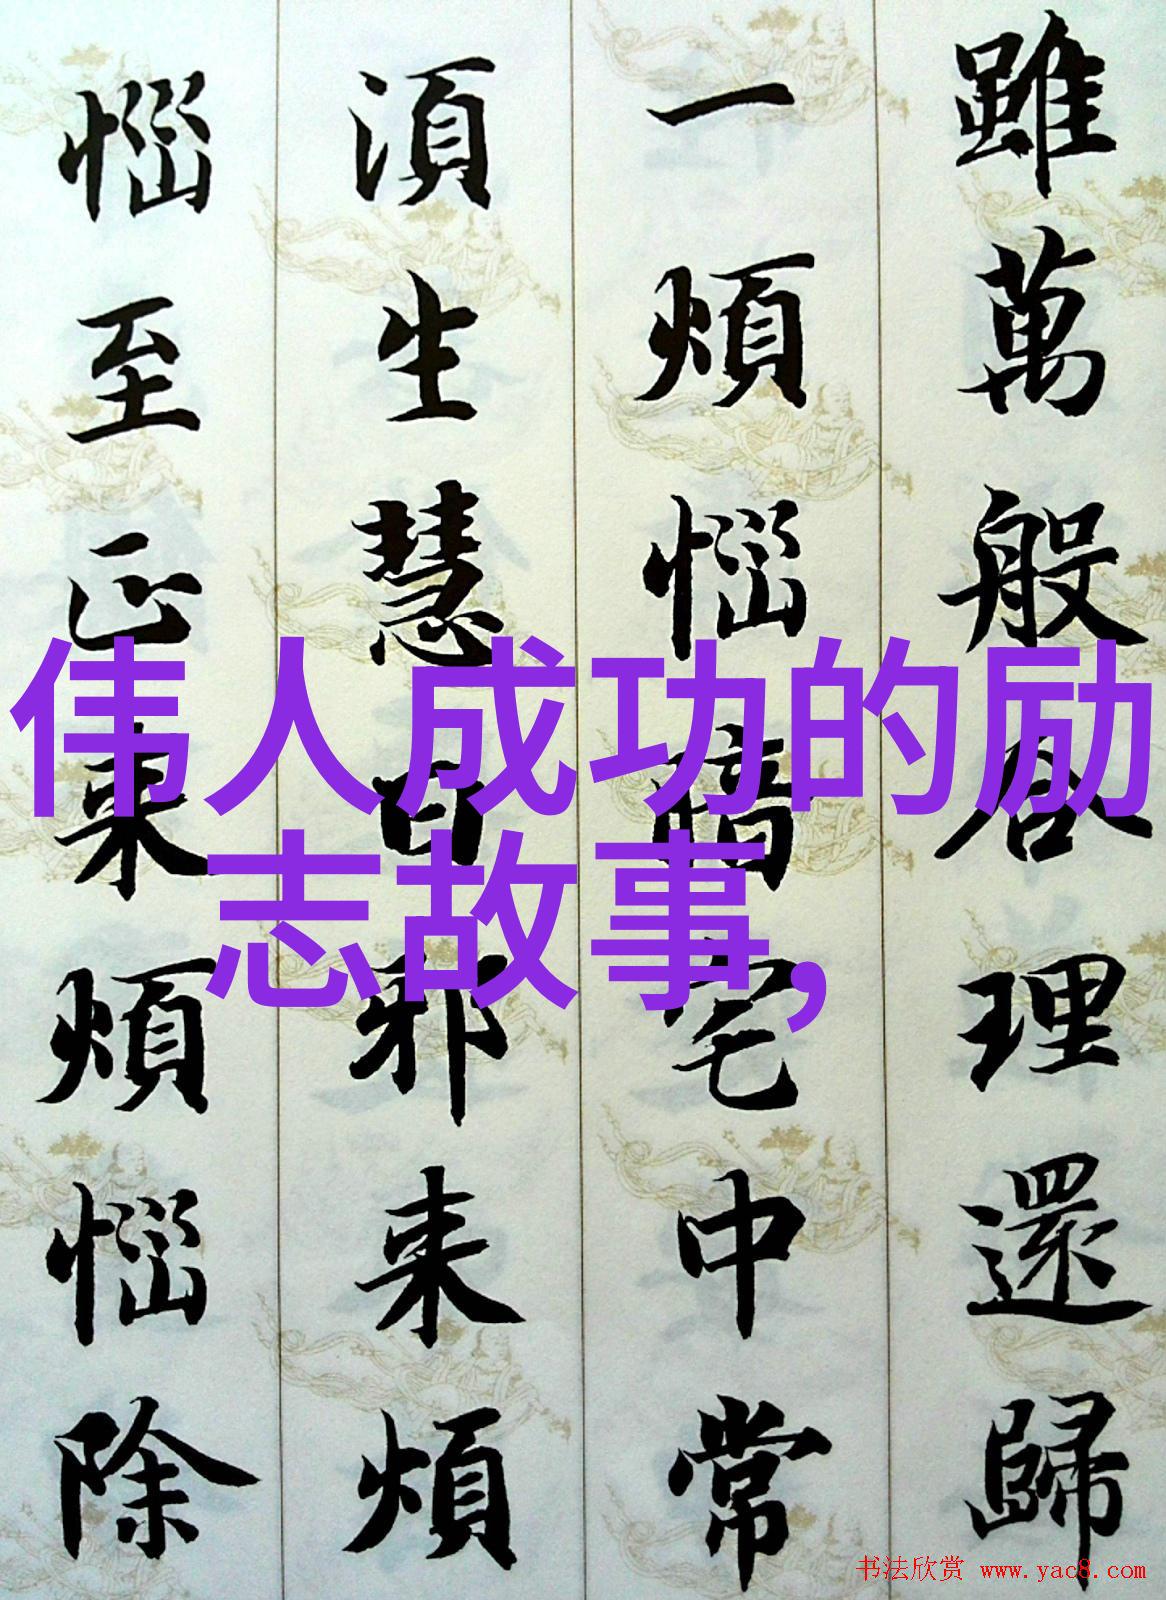 雖萬般合理還歸
一煩惱暗宅中常
湏生慧日邪来煩
惱至正来煩惱除
伟人成功的励
志故事,
书法欣赏 www.yac8.com